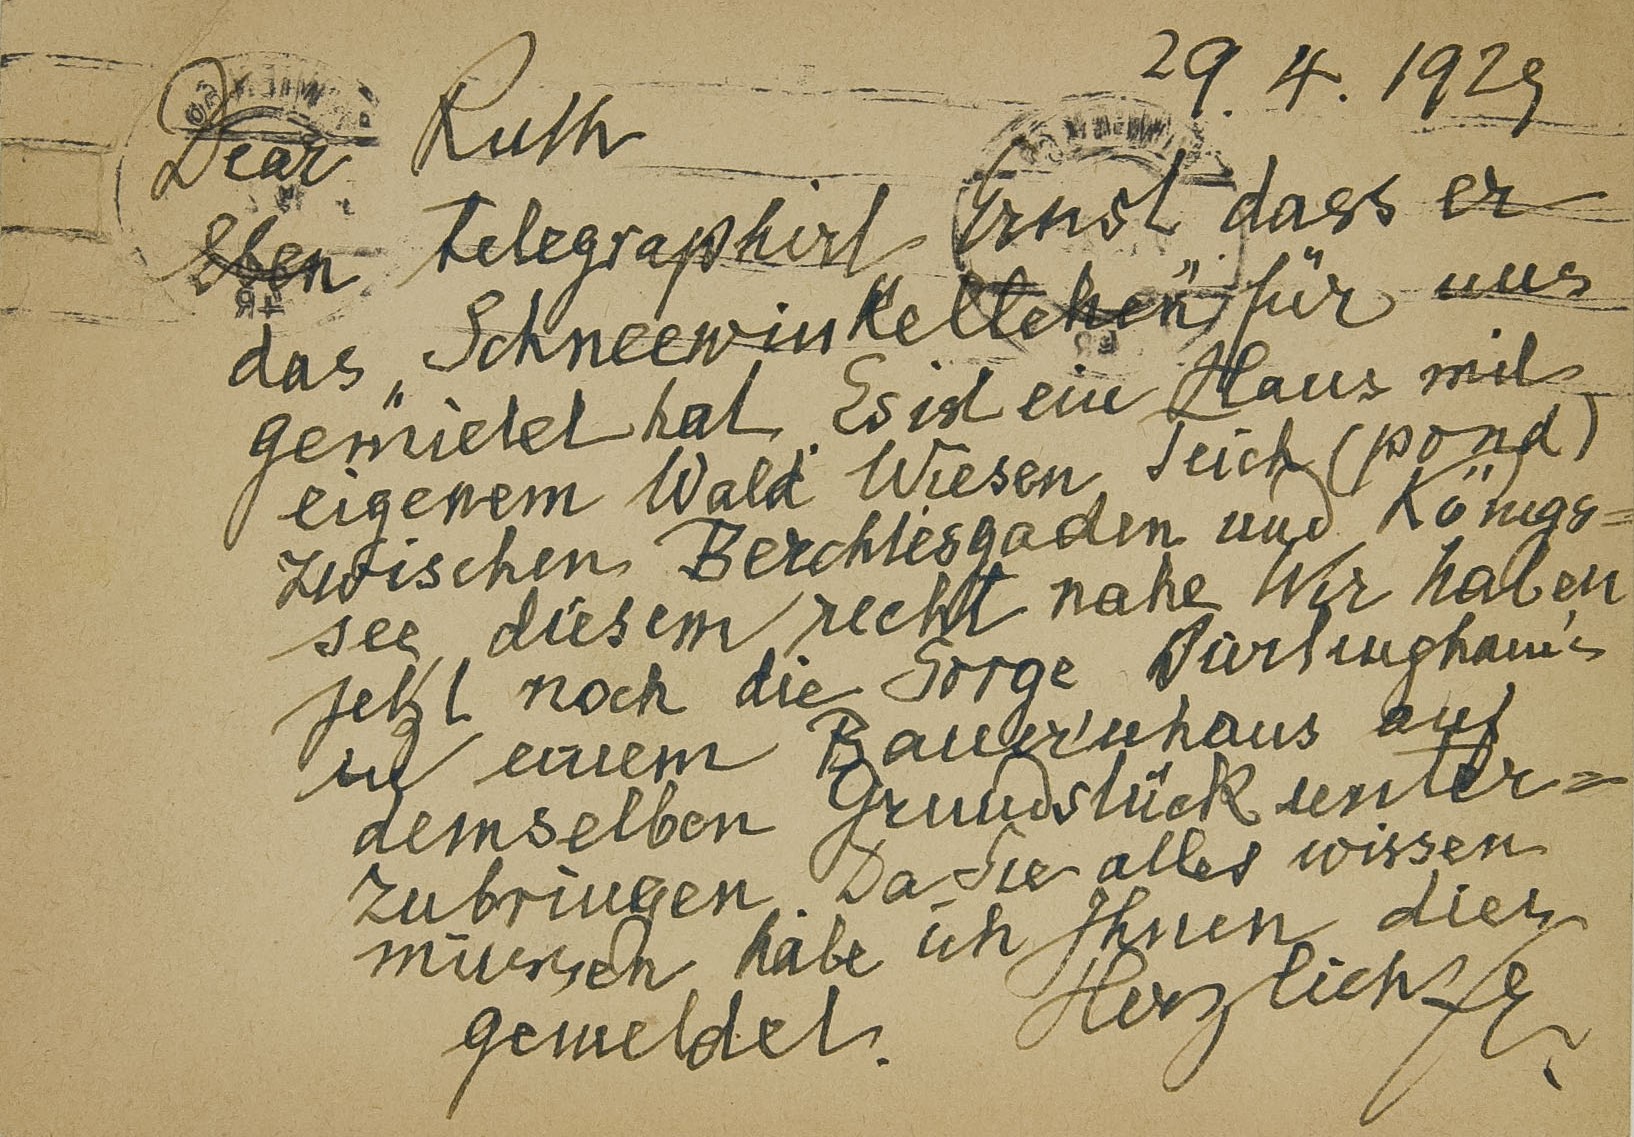 29. 4. 1929
Dear Ruth
Eben telegraphirt Ernst dass er
das „Schneewinkellehen" für uns
gemietet hat. Es ist ein Haus mit
eigenem Wald Wiesen Teich (pond)
zwischen Berchtesgaden und Königs=
see, diesem recht nahe Wir haben
jetzt noch die Sorge Burlingham's
in einem Bauernhaus auf
demselben Grundstück unter=
zubringen. Da Sie alles wissen
müssen habe ich Ihnen dies
gemeldet. Herzlichst